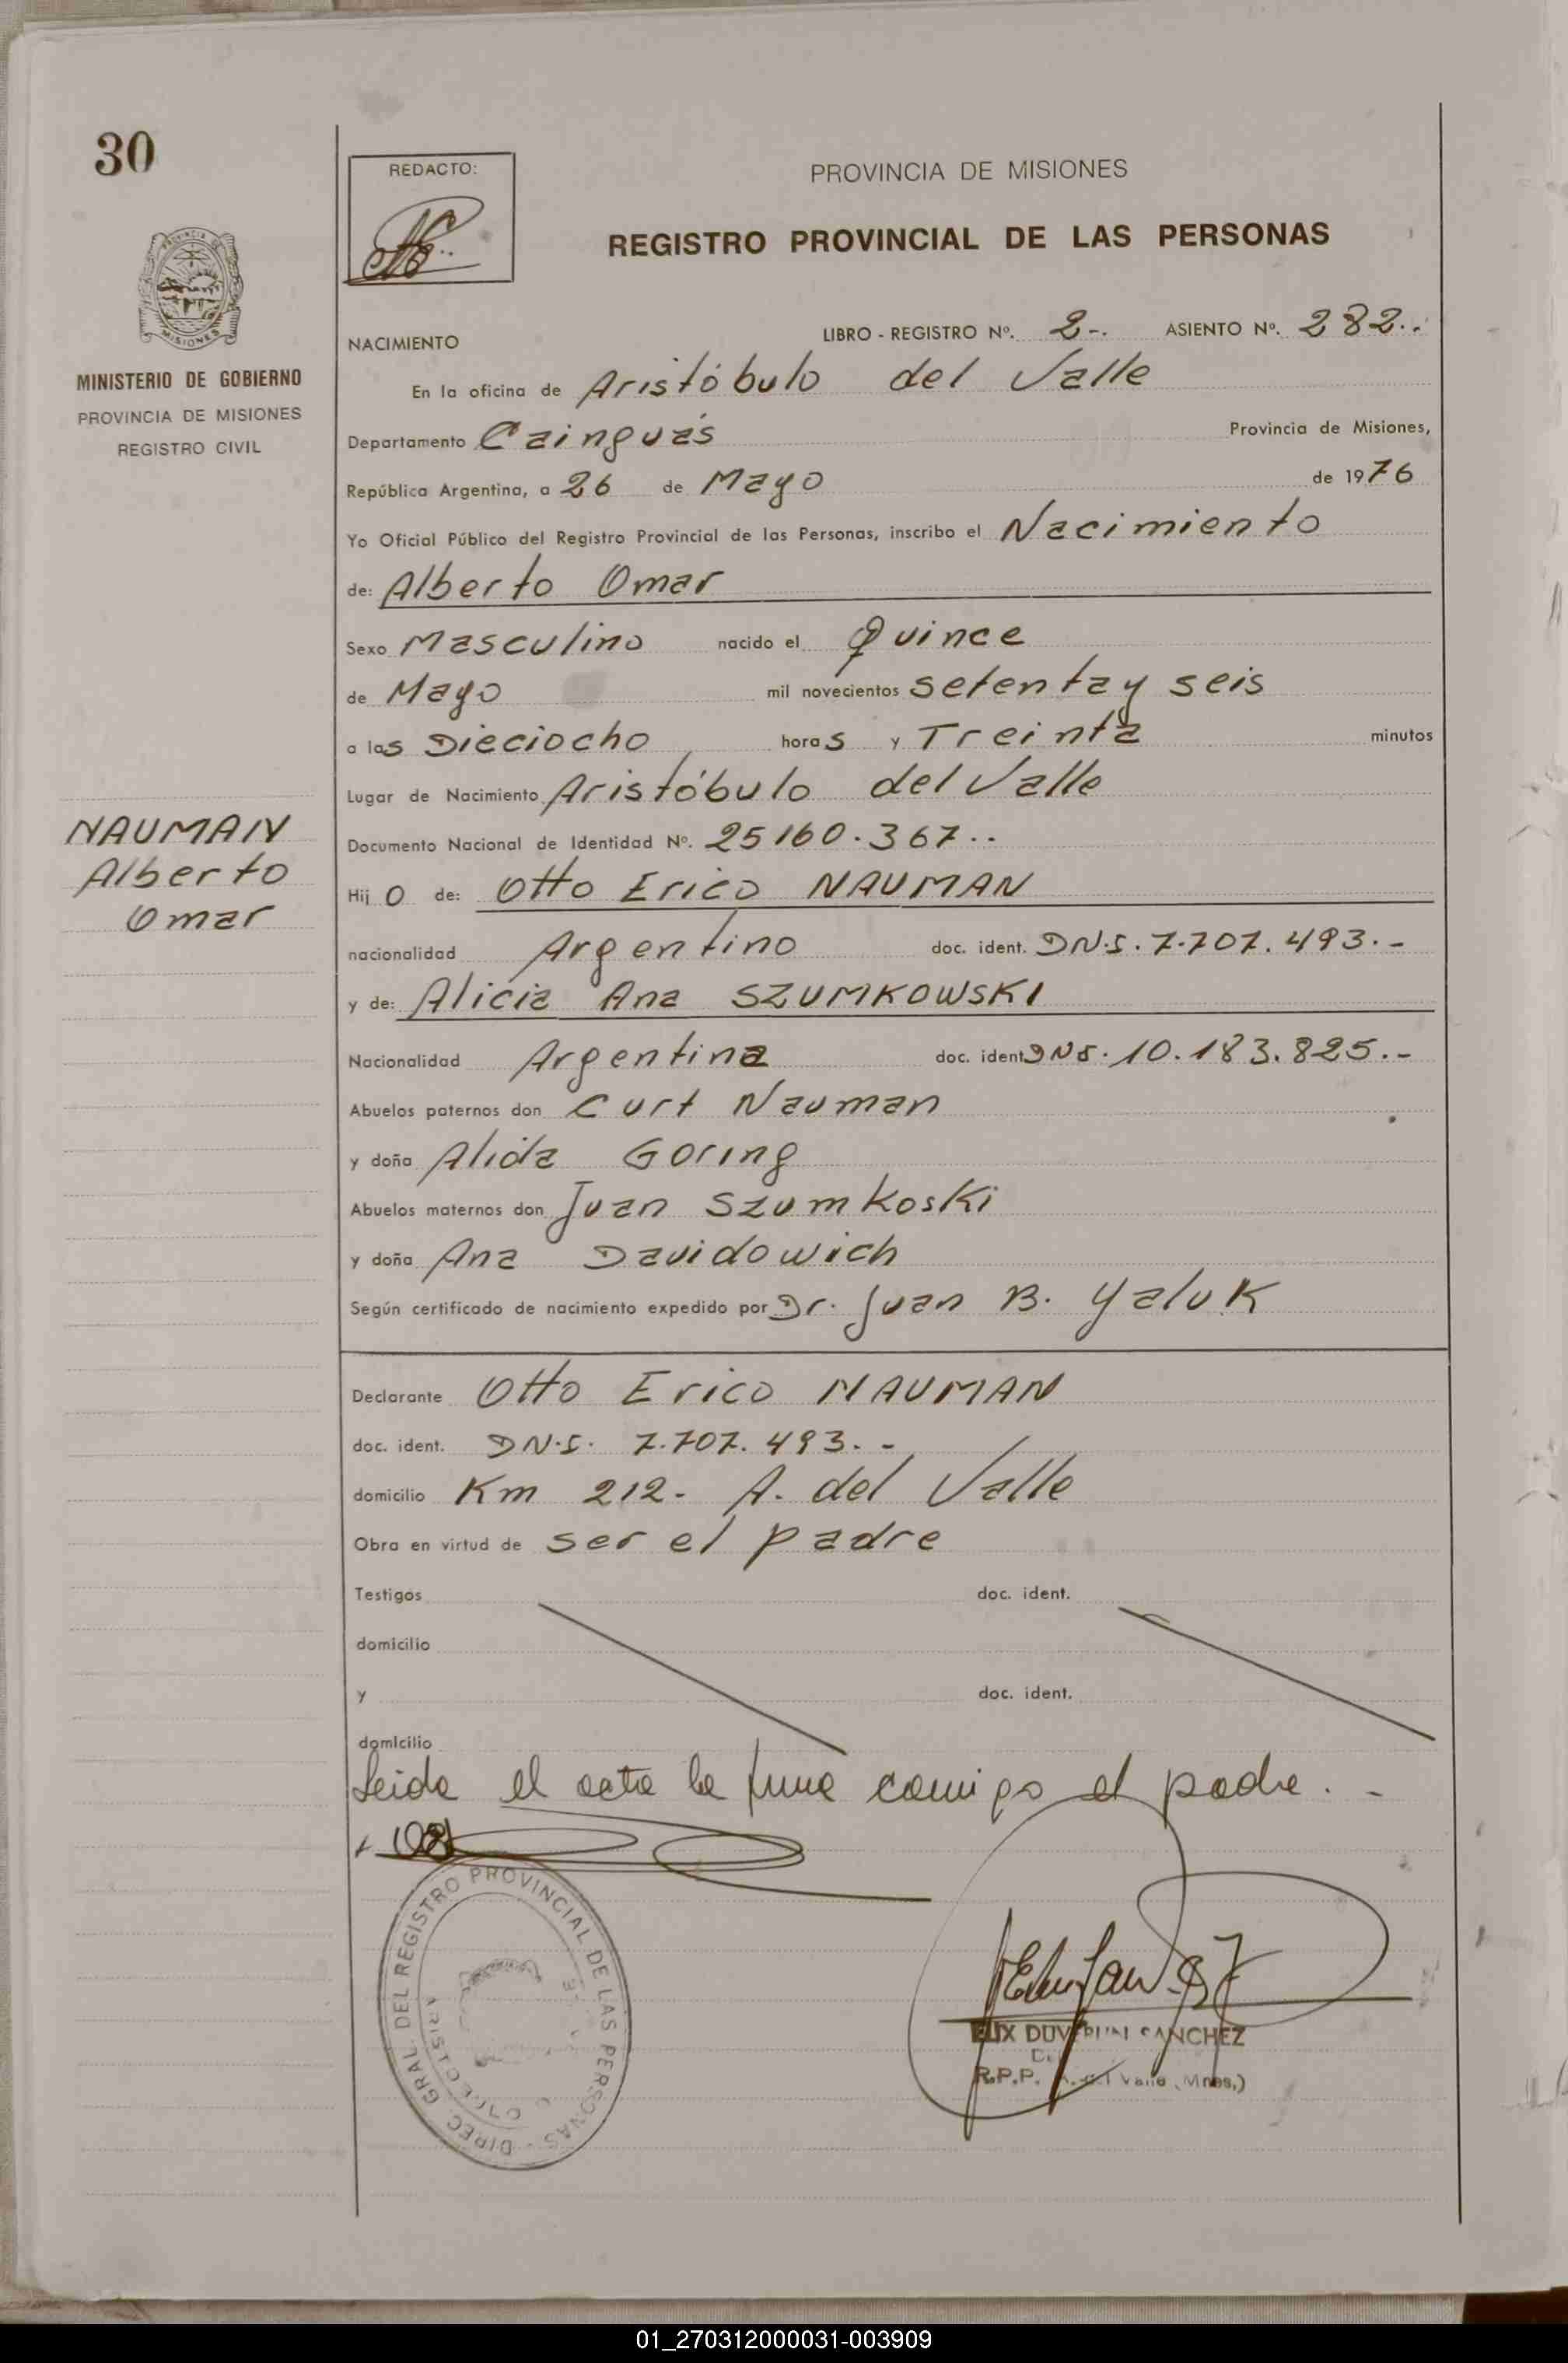 30
REDACTO:
PROVINCIA DE MISIONES
REGISTRO PROVINCIAL DE LAS PERSONAS
PROVINCIA DE
MISIONES
MINISTERIO DE GOBIERNO
PROVINCIA DE MISIONES
REGISTRO CIVIL
NACIMIENTO LIBRO - REGISTRO Nº. 2-. ASIENTO Nº. 282..
En la oficina de Aristóbulo del Valle
Departamento Cainguás Provincia de Misiones,
República Argentina, a 26 de Mayo de 1976
Yo Oficial Público del Registro Provincial de las Personas, inscribo el Nacimiento
de: Alberto Omar
Sexo Masculino nacido el Quince
de Mayo mil novecientos setenta y seis
a las Dieciocho horas y Treinta minutos
Lugar de Nacimiento Aristóbulo del Valle
NAUMAN
Alberto
Omar
Documento Nacional de Identidad Nº. 25160.367..
Hijo de: Otto Erico NAUMAN
nacionalidad Argentino doc. ident. DN.I. 7.707.493.-
y de: Alicia Ana SZUMKOWSKI
Nacionalidad Argentina doc. ident DNI. 10.183.825.-
Abuelos paternos don Curt Nauman
y doña Alida Goring
Abuelos maternos don Juan Szumkoski
y doña Ana Davidowich
Según certificado de nacimiento expedido por Dr. Juan B. Yaluk
Declarante Otto Erico NAUMAN
doc. ident. DN.I. 7.707.493.-
domicilio Km 212- A. del Valle
Obra en virtud de ser el padre
Testigos doc. ident.
domicilio
y doc. ident.
domicilio
Leida el acta la firma conmigo el padre.-
DIREC. GRAL. DEL REGISTRO PROVINCIAL DE LAS PERSONAS
SANCHEZ
R.P.P. Valle (Mnes.)
01_270312000031-003909